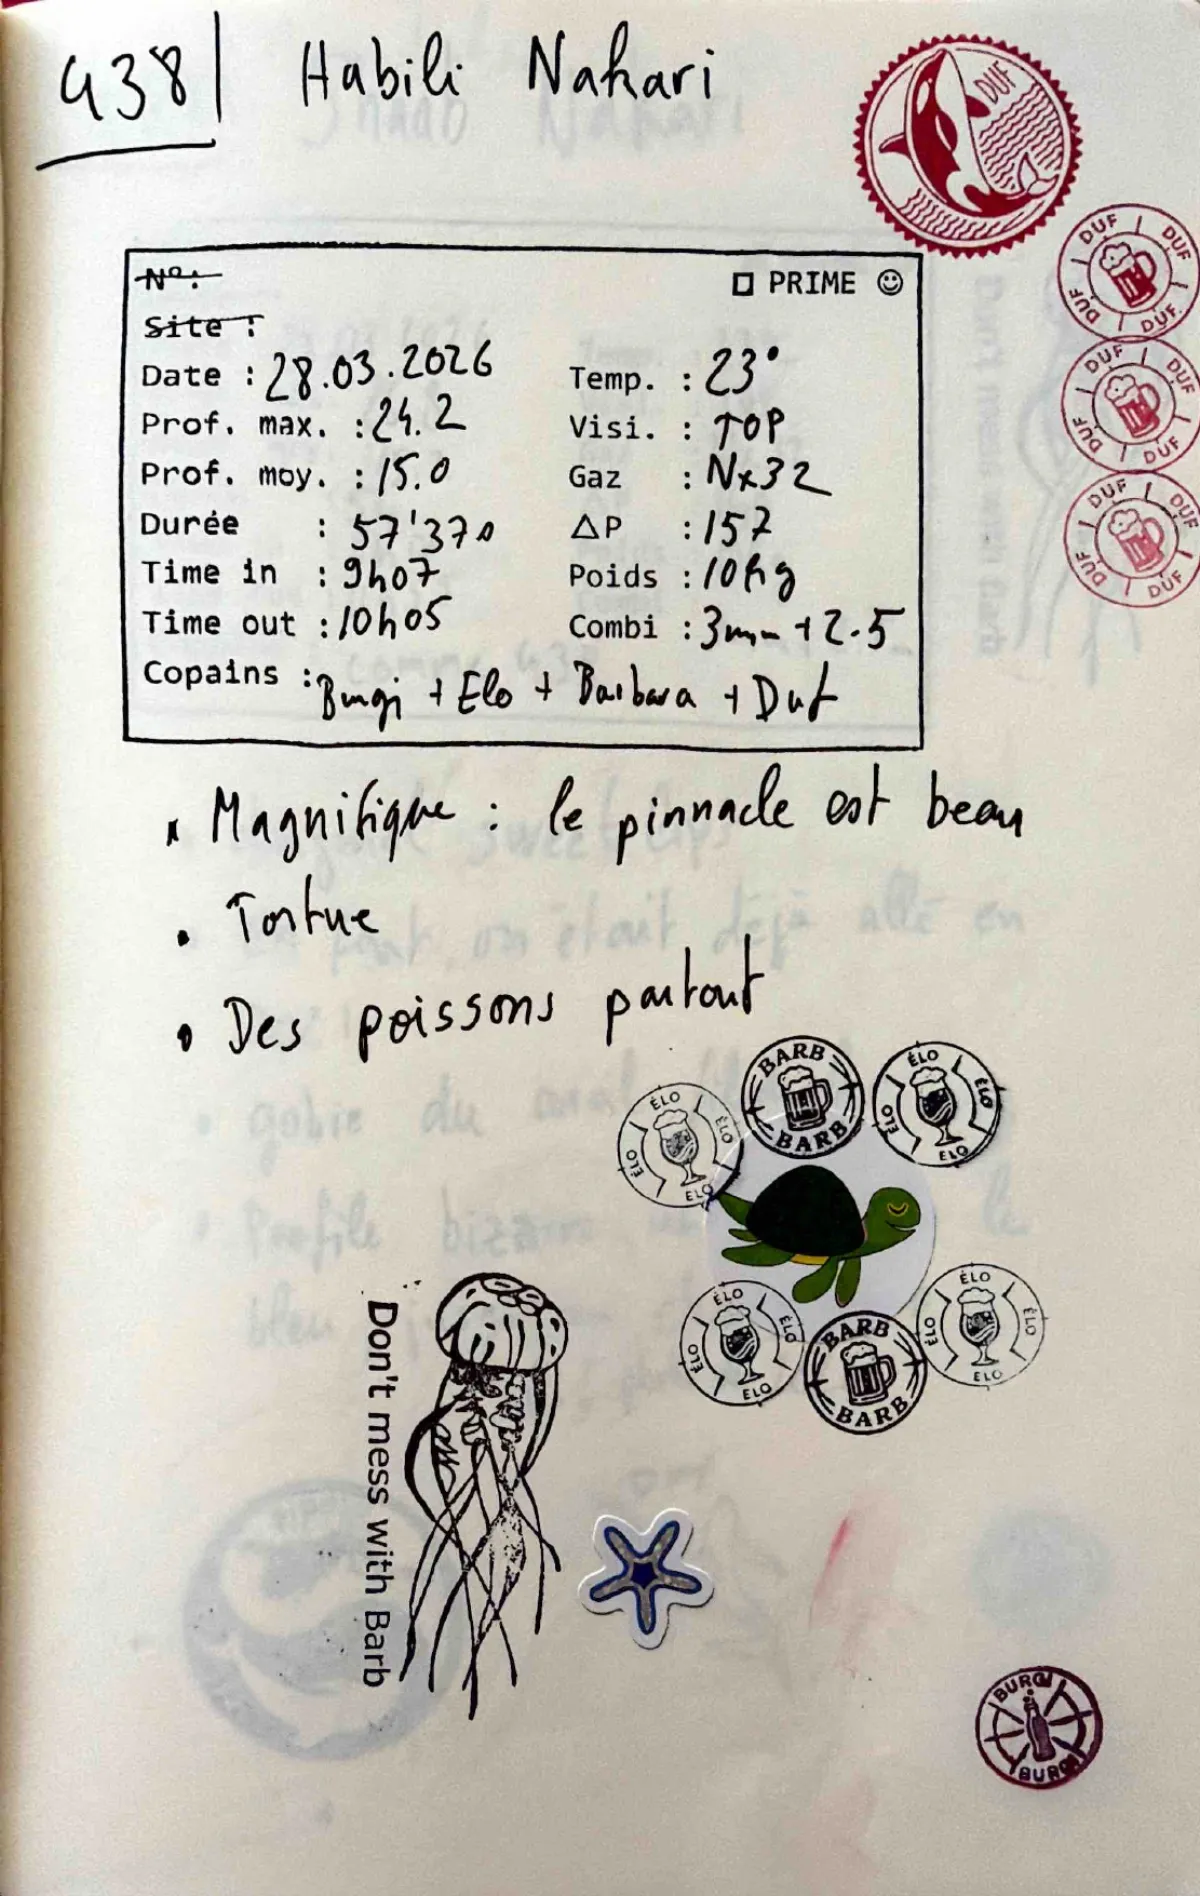 438| Habili Nahari
DUF
N°:
□ PRIME ☺
Site :
Date : 28.03.2026
Temp. : 23°
Prof. max. : 24.2
Visi. : TOP
Prof. moy. : 15.0
Gaz : Nx32
Durée : 57'37s
ΔP : 157
Time in : 9h07
Poids : 10kg
Time out : 10h05
Combi : 3mm + 2.5
Copains : Burgi + Elo + Barbara + Duf
DUF DUF DUF DUF
DUF DUF DUF DUF
DUF DUF DUF DUF
x Magnifique : le pinnacle est beau
• Tortue
• Des poissons partout
ÉLO ÉLO ELO ÉLO
BARB BARB
ÉLO ÉLO ELO ÉLO
ÉLO ÉLO ELO ÉLO
BARB BARB
ÉLO ÉLO ELO ÉLO
Don't mess with Barb
BURGI BURGI